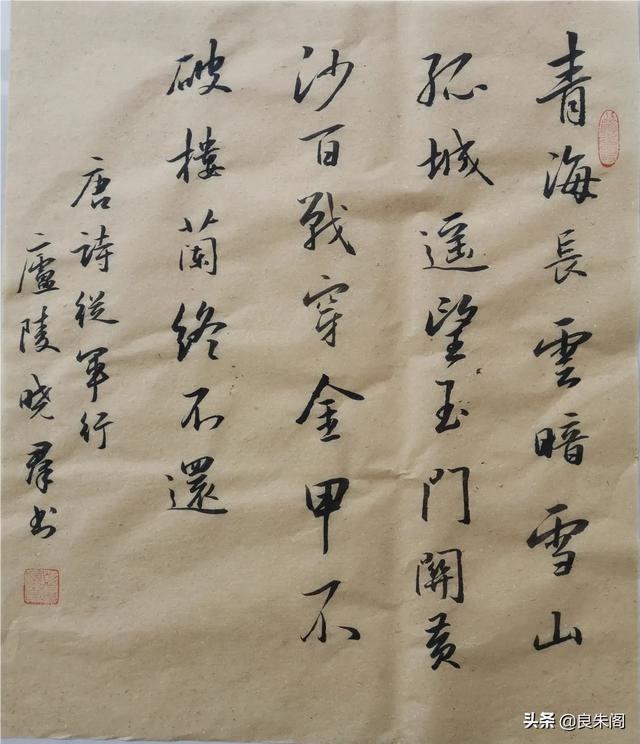 青海長雲暗雪山
孤城遥望玉门關黄
沙百战穿金甲不
破楼蘭终不還
唐詩從军行
廬陵晓群书
头条 @良朱阁